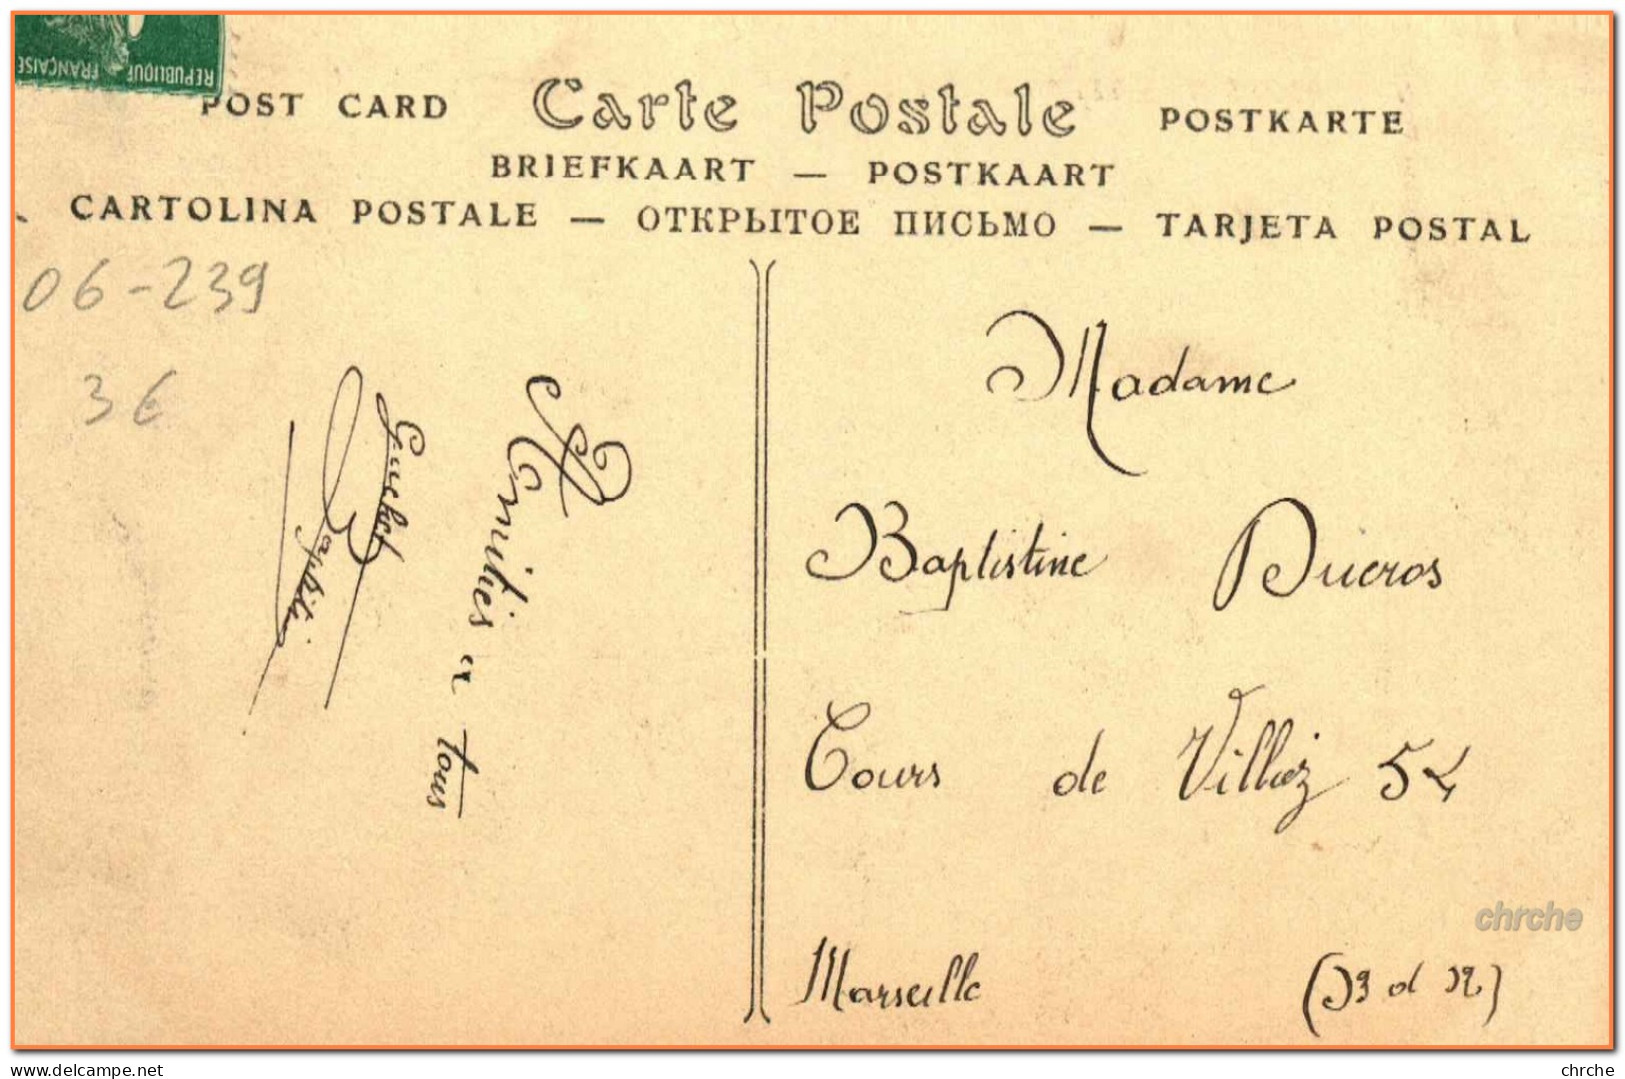 REPUBLIQUE FRANÇAISE
POST CARD Carte Postale POSTKARTE
BRIEFKAART — POSTKAART
CARTOLINA POSTALE — ОТКРЫТОЕ ПИСЬМО — TARJETA POSTAL
06-239
3€
Amitiés a tous
Madame
Baptistine Ducros
Cours de Villiez 54
Marseille (B d R)
chrche
www.delcampe.net
chrche